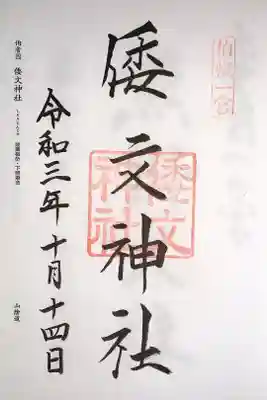 伯耆一宮
倭文神社
倭文神社
令和三年十月十四日
伯耆国 倭文神社
山陰道